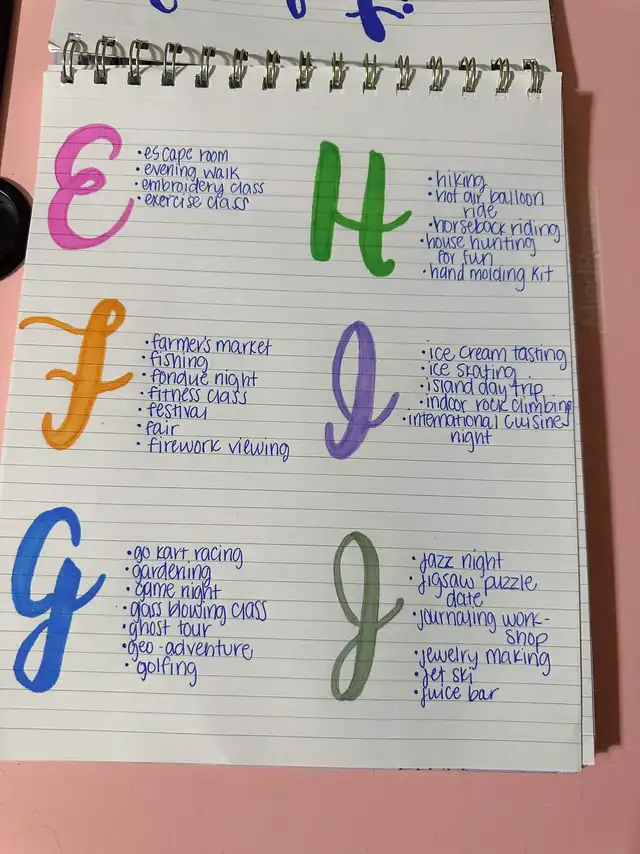 E
• escape room
• evening walk
• embroidery class
• exercise class
F
• farmers market
• fishing
• fondue night
• fitness class
• festival
• fair
• firework viewing
G
• go kart racing
• gardening
• game night
• glass blowing class
• ghost tour
• geo-adventure
• golfing
H
• hiking
• hot air balloon
ride
• horseback riding
• house hunting
for fun
• hand molding kit
I
• ice cream tasting
• ice skating
• island day trip
• indoor rock climbing
• international cuisine
night
J
• jazz night
• jigsaw puzzle
date
• journaling work-
shop
• jewelry making
• jet ski
• juice bar